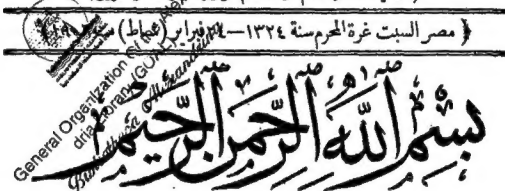 ﴿ مصر السبت غرة المحرم سنة ١٣٢٤ — ٢٤ فبراير (شباط) سنة ١٩٠٦ ﴾
بسم الله الرحمن الرحيم
General Organization of the Alexandria Library (GOAL)
Bibliotheca Alexandrina